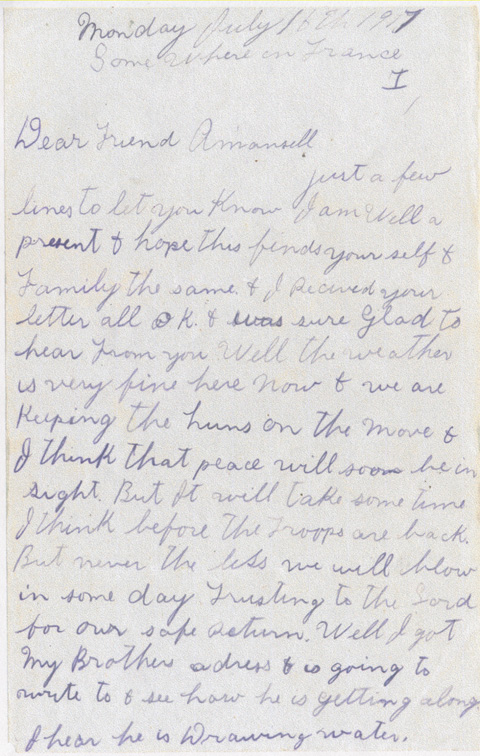 Monday July 16th 1917
Some Where in France
I
Dear Friend Amansell
just a few
lines to let you Know I am Well a
present & hope this finds your self &
Family the same. & I Recived your
letter all OK. & was sure Glad to
hear From you Well the weather
is very fine here Now & we are
Keeping the huns on the move &
I think that peace will soon be in
sight. But It will take some time
I think before the Troops are back.
But never the less we will blow
in some day Trusting to the Lord
for our safe Return. Well I got
My Brothers adress & is going to
write to & see how he is getting along
I hear he is Drawing water.